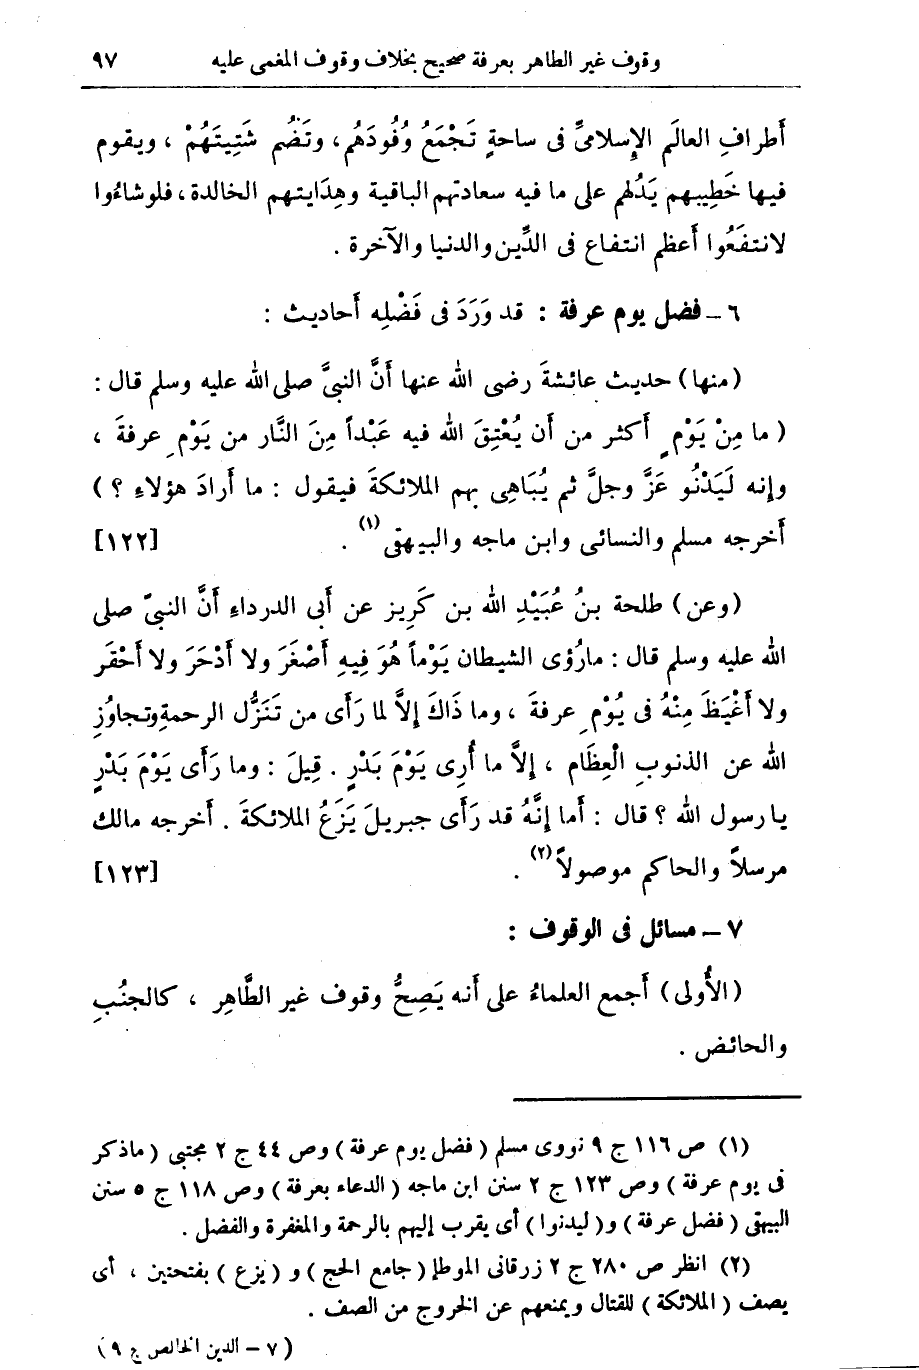 وقوف غير الطاهر بعرفة صحيح بخلاف وقوف المغمى عليه ٩٧
أطرافِ العالَم الإسلامىِّ فى ساحةٍ تَجْمَعُ وُفُودَهُم، وتَضُم شَتِيتَهُمْ ، ويقوم
فيها خَطِيبهم يَدُلهم على ما فيه سعادتهم الباقية وهِدَايتهم الخالدة، فلو شاءُوا
لانتفَعُوا أعظم انتفاع فى الدِّين والدنيا والآخرة .
٦ ـ فضل يوم عرفة : قد وَرَدَ فى فَضْلِه أحاديث :
(منها) حديث عائشةَ رضى الله عنها أنَّ النبىَّ صلى الله عليه وسلم قال :
( ما مِنْ يَوْمٍ أكثر من أن يُعْتِقَ الله فيه عَبْداً مِنَ النَّار من يَوْمِ عرفةَ ،
وإنه لَيَدْنُو عَزَّ وجلَّ ثم يُبَاهِى بهم الملائكةَ فيقول : ما أرادَ هؤلاءِ ؟ )
أخرجه مسلم والنسائى وابن ماجه والبيهقى (١) . [١٢٢]
(وعن) طلحة بنُ عُبَيْدِ الله بن كَرِيز عن أبى الدرداءِ أنَّ النبىّ صلى
الله عليه وسلم قال : مارُؤى الشيطان يَوْماً هُوَ فِيهِ أصْغَرَ ولا أدْحَرَ ولا أحْقَر
ولا أغْيَظَ مِنْهُ فى يُوْمِ عرفةَ ، وما ذَاكَ إلاَّ لما رَأى من تَنَزُّل الرحمةِ وتجاوُزِ
الله عن الذنوبِ الْعِظَام ، إلاَّ ما أُرِى يَوْمَ بَدْرٍ . قِيلَ : وما رَأى يَوْمَ بَدْرٍ
يا رسول الله ؟ قال : أما إنَّهُ قد رَأى جبريلَ يَزَعُ الملائكةَ . أخرجه مالك
مرسلاً والحاكم موصولاً (٢) . [١٢٣]
٧ ـ مسائل فى الوقوف :
(الأُولى) أجمع العلماءُ على أنه يَصِحُّ وقوف غير الطَّاهِر ، كالجنُبِ
والحائض .
(١) ص ١١٦ ج ٩ نووى مسلم ( فضل يوم عرفة ) وص ٤٤ ج ٢ مجتبى ( ماذكر
فى يوم عرفة ) وص ١٢٣ ج ٢ سنن ابن ماجه ( الدعاء بعرفة ) وص ١١٨ ج ٥ سنن
البيهقى ( فضل عرفة ) و( ليدنوا ) أى يقرب إليهم بالرحمة والمغفرة والفضل .
(٢) انظر ص ٢٨٠ ج ٢ زرقانى الموطإ ( جامع الحج ) و ( يزع ) بفتحتين ، أى
يصف ( الملائكة ) للقتال ويمنعهم عن الخروج من الصف .
( ٧ ـ الدين الخالص ج ٩ )